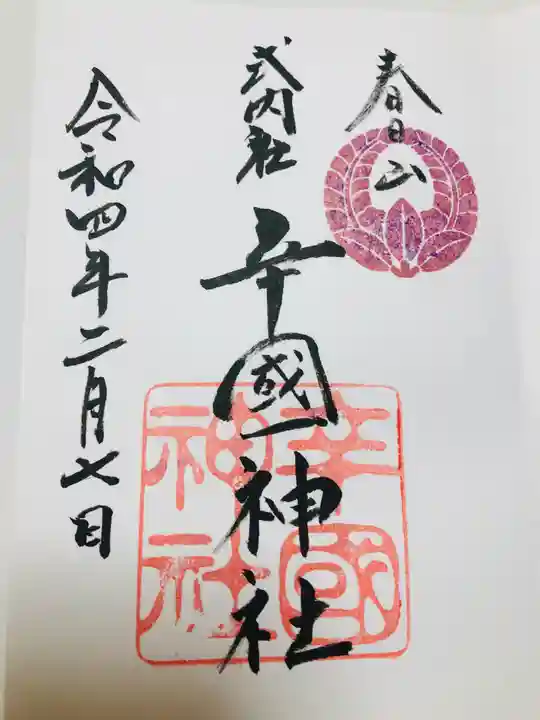 春日山
式内社
辛國神社
令和四年二月七日
辛國
神社